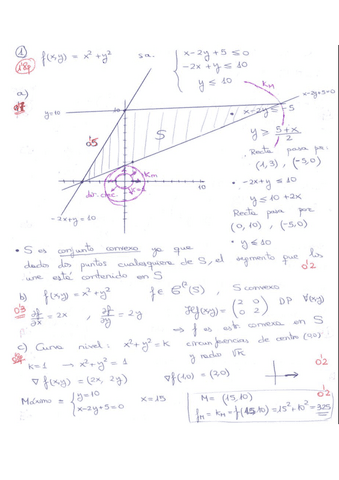 ① f(x,y) = x² + y² s.a. { x-2y+5 ≤ 0
-2x + y ≤ 10
y ≤ 10
a)
y=10
10
0'5
S
K_M
x-2y+5=0
x-2y ≤ -5
y ≥ 5+x / 2
Recta pasa por:
(1,3), (-5,0)
• -2x+y ≤ 10
y ≤ 10+2x
Recta pasa por
(0,10), (-5,0)
• y ≤ 10
K_m
dir. crec.
10
-2x+y=10
• S es conjunto convexo ya que
dados dos puntos cualesquiera de S, el segmento que los
une está contenido en S
0'2
b) f(x,y) = x²+y² f ∈ C²(S), S convexo
0'3
∂f/∂x = 2x, ∂f/∂y = 2y Hf(x,y) = (2 0 / 0 2) DP ∀(x,y)
→ f es estr. convexa en S
c) Curva nivel: x²+y² = K circunferencias de centro (0,0)
y radio √K
K=1 → x²+y² = 1
∇f(x,y) = (2x, 2y) ∇f(1,0) = (2,0)
0'2
Máximo = { y=10
x-2y+5=0 x=15
M = (15,10)
f_M = K_M = f(15,10) = 15²+10² = 325
0'2